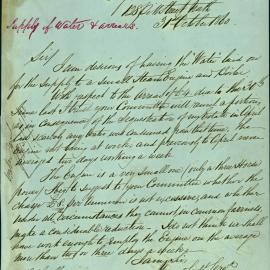 Supply of Water & arrears
138 Elizabeth Street North
31 October 1860.
Sir,
I am desirous of having the Water laid on
for the supply to a small Steam Engine and Boiler
With respect to the arrears of due to the 30th
June last I trust your Committee will remit a portion,
as in consequence of the Sequestration of my Estate in April
last scarcely any water was consumed from that time, the
engine not being at work, and previously to April never
averaged two days working a week.
The Engine is a very small one (only a three horse
power) I beg to suggest to your Committee whether the
charge £8. per annum is not excessive, and whether
under all circumstances they cannot in common fairness,
make a considerable reduction. I do not think we shall
have work enough to employ the Engine on the average
more than two or three days a week.
I am Sir